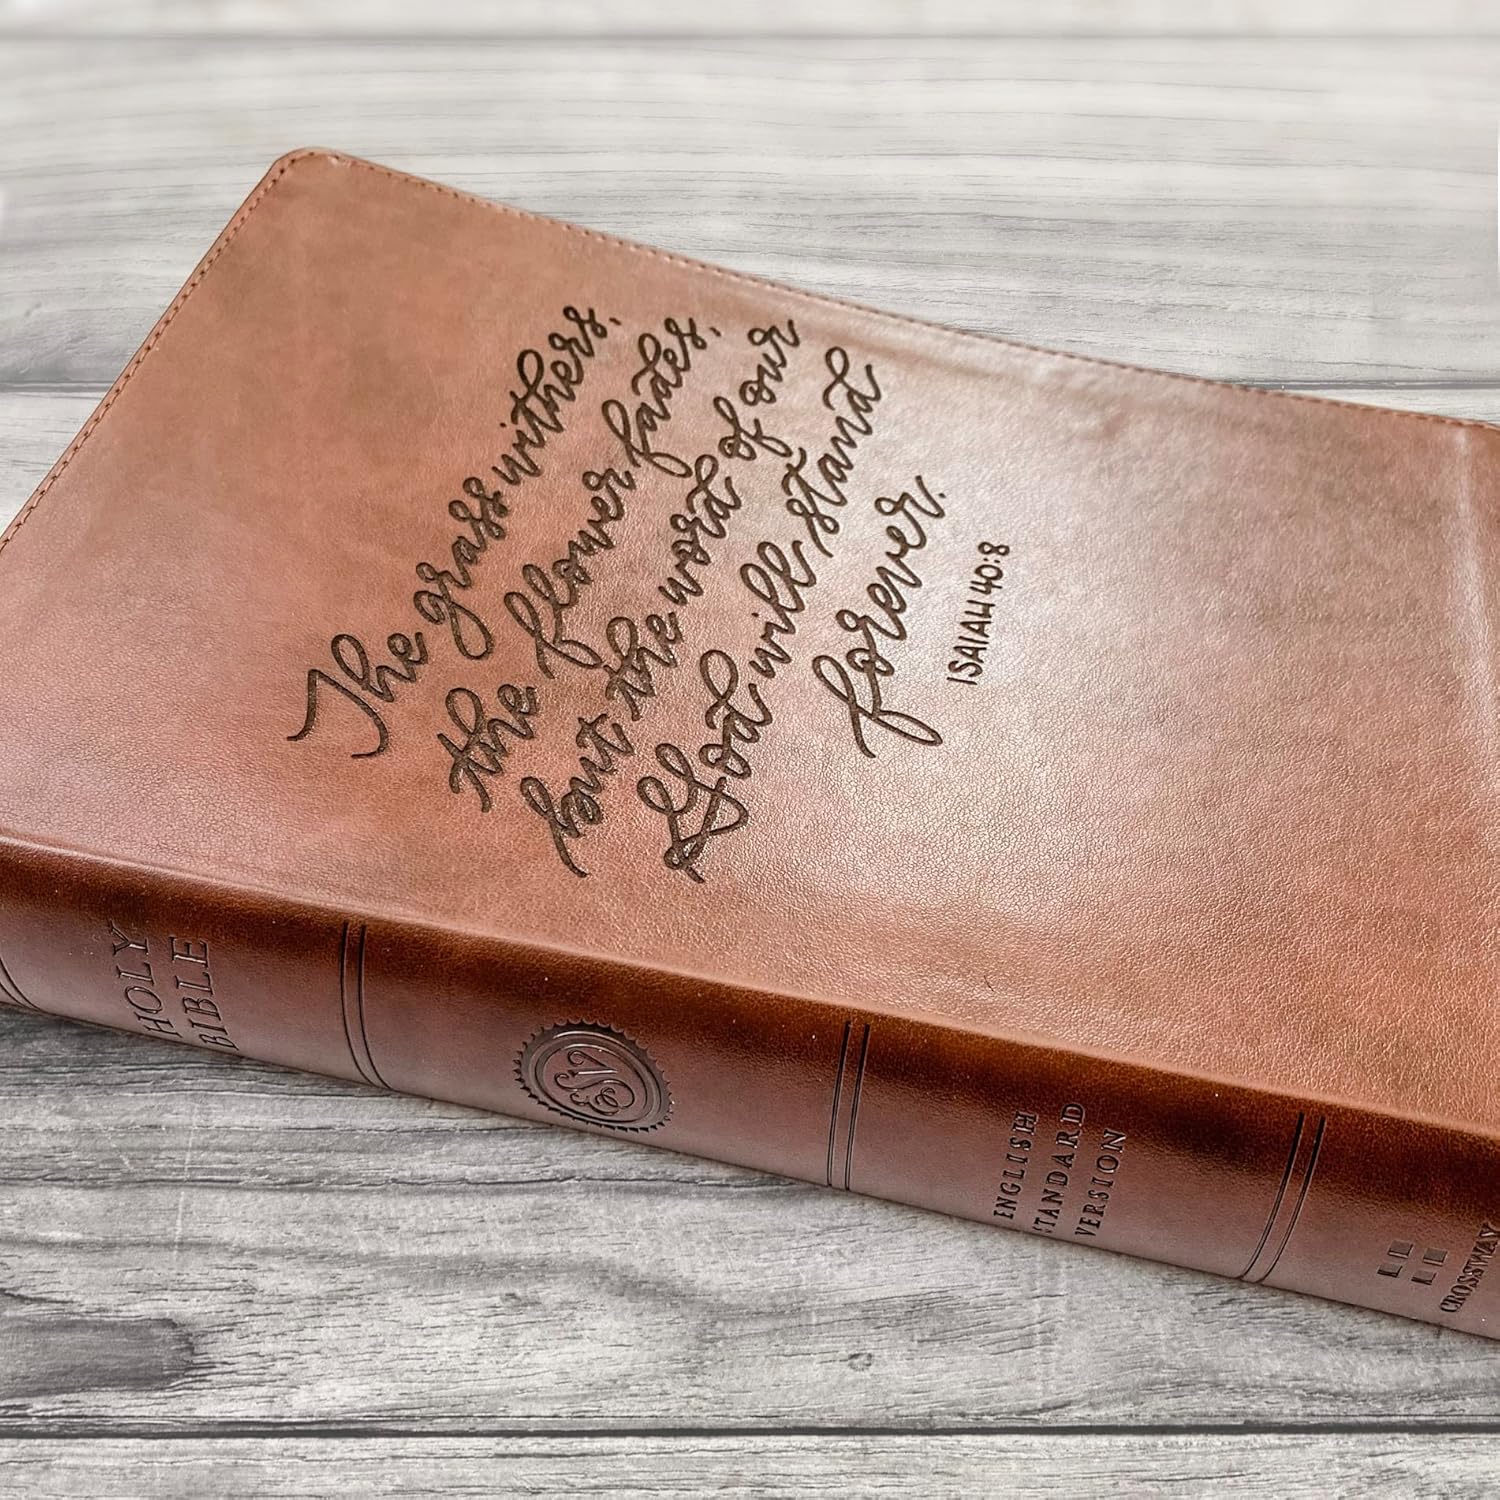 The grass withers,
the flower fades,
but the word of our
God will stand
forever.
ISAIAH 40:8
HOLY
BIBLE
ESV
ENGLISH
STANDARD
VERSION
CROSSWAY